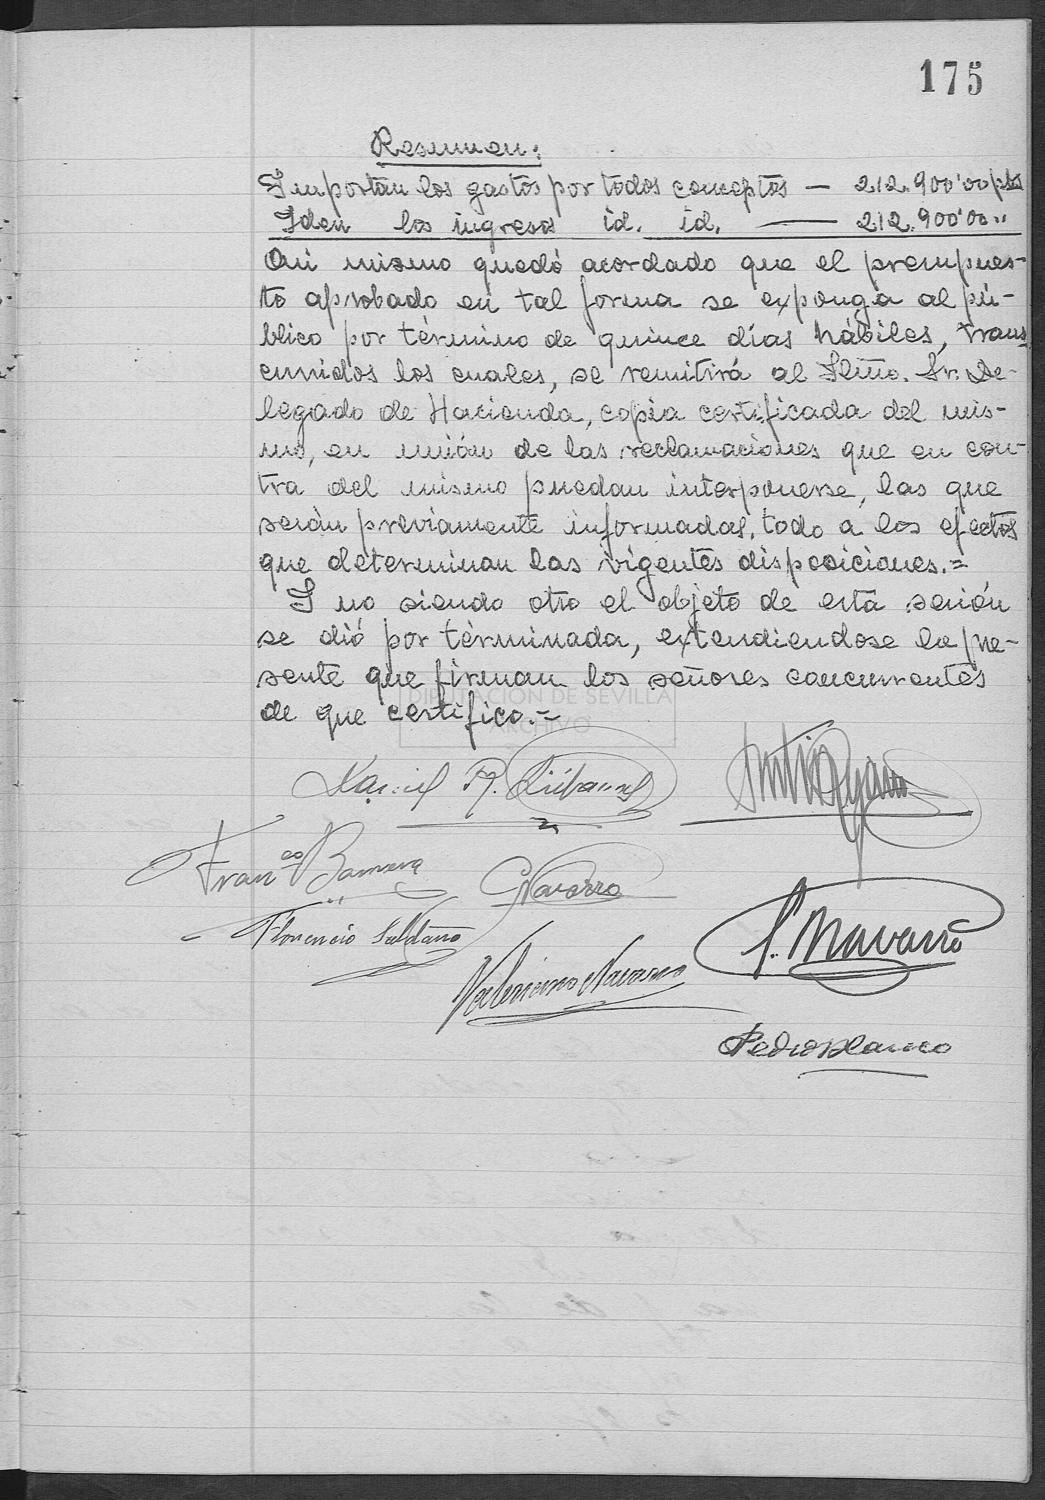 175
Resumen:
Importan los gastos por todos conceptos — 212.900'00 pts
Iden los ingresos id. id. — 212.900'00 "
Asi mismo quedó acordado que el presupues-
to aprobado en tal forma se exponga al pú-
blico por término de quince días hábiles, trans
curridos los cuales, se remitirá al Iltmo. Sr. De-
legado de Hacienda, copia certificada del mis-
mo, en unión de las reclamaciones que en con-
tra del mismo puedan interponerse, las que
serán previamente informadas, todo a los efectos
que determinan las vigentes disposiciones.=
I no siendo otro el objeto de esta sesión
se dió por términada, extendiendose la pre-
sente que firman los señores concurrentes
de que certifico.=
DIPUTACIÓN DE SEVILLA
ARCHIVO
Franco
Navarro
Florencio Saldaño
S. Navarro
Valeriano Navarro
Pedro Blanco